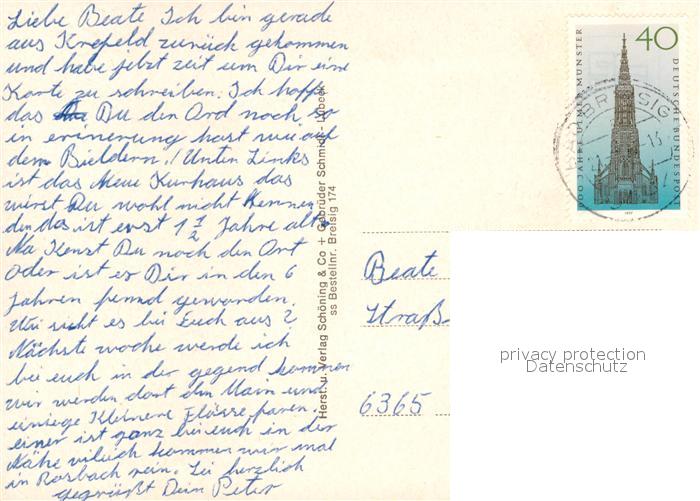 Liebe Beate Ich bin gerade
aus Krefeld zurück gekommen
und habe jetzt zeit um Dir eine
Karte zu schreiben. Ich hoffe
das Du den Ord noch so
in erinerung hast wie auf
den Bieldern! Unten Links
ist das Neue Kurhaus das
wirst Du wohl nicht kennen
den das ist erst 1 1/2 Jahre alt.
Na Kenst Du noch den Ort
oder ist er Dir in den 6
Jahren fremd geworden.
Wie sieht es bei Euch aus ?
Nächste woche werde ich
bei euch in der gegend kommen
wir werden dort den Main und
einige Kleinere Flüsse faren.
einer ist ganz bei euch in der
Nähe vileich kommen wir mal
in Rosbach rein. Sei herzlich
gegrüßt Dein Peter
Herst. u. Verlag Schöning & Co + Gebrüder Schmidt, Lübeck
ss Bestellnr. Breisig 174
40
900 JAHRE ULMER MÜNSTER
DEUTSCHE BUNDESPOST
1977
BAD BREISIG
Beate
Straß
6365
privacy protection
Datenschutz